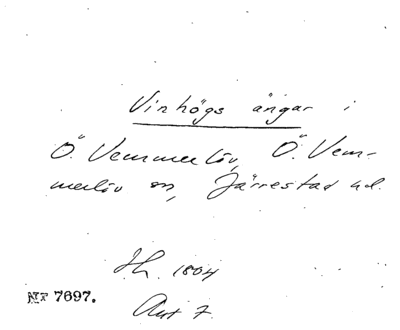 Vinhögs ängar i
Ö. Vemmerlöv, Ö. Vem-
merlöv sn, Järrestad hd.
1804
Nr 7697.
Akt 7.